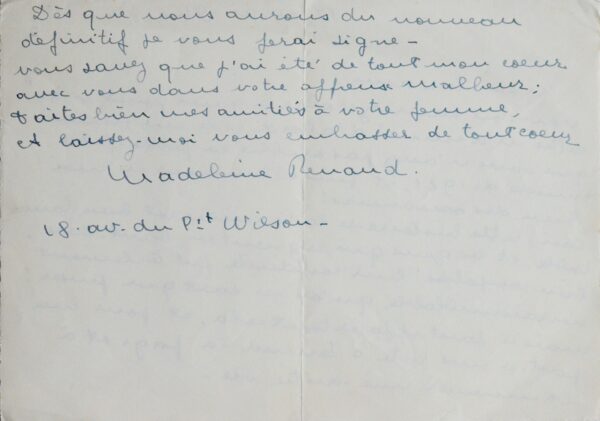 Dès que nous aurons du nouveau
définitif je vous ferai signe -
vous savez que j'ai été de tout mon coeur
avec vous dans votre affreux malheur ;
Faites bien mes amitiés à votre femme,
et laissez-moi vous embrasser de tout coeur
Madeleine Renaud.
18. av. du Pt Wilson -